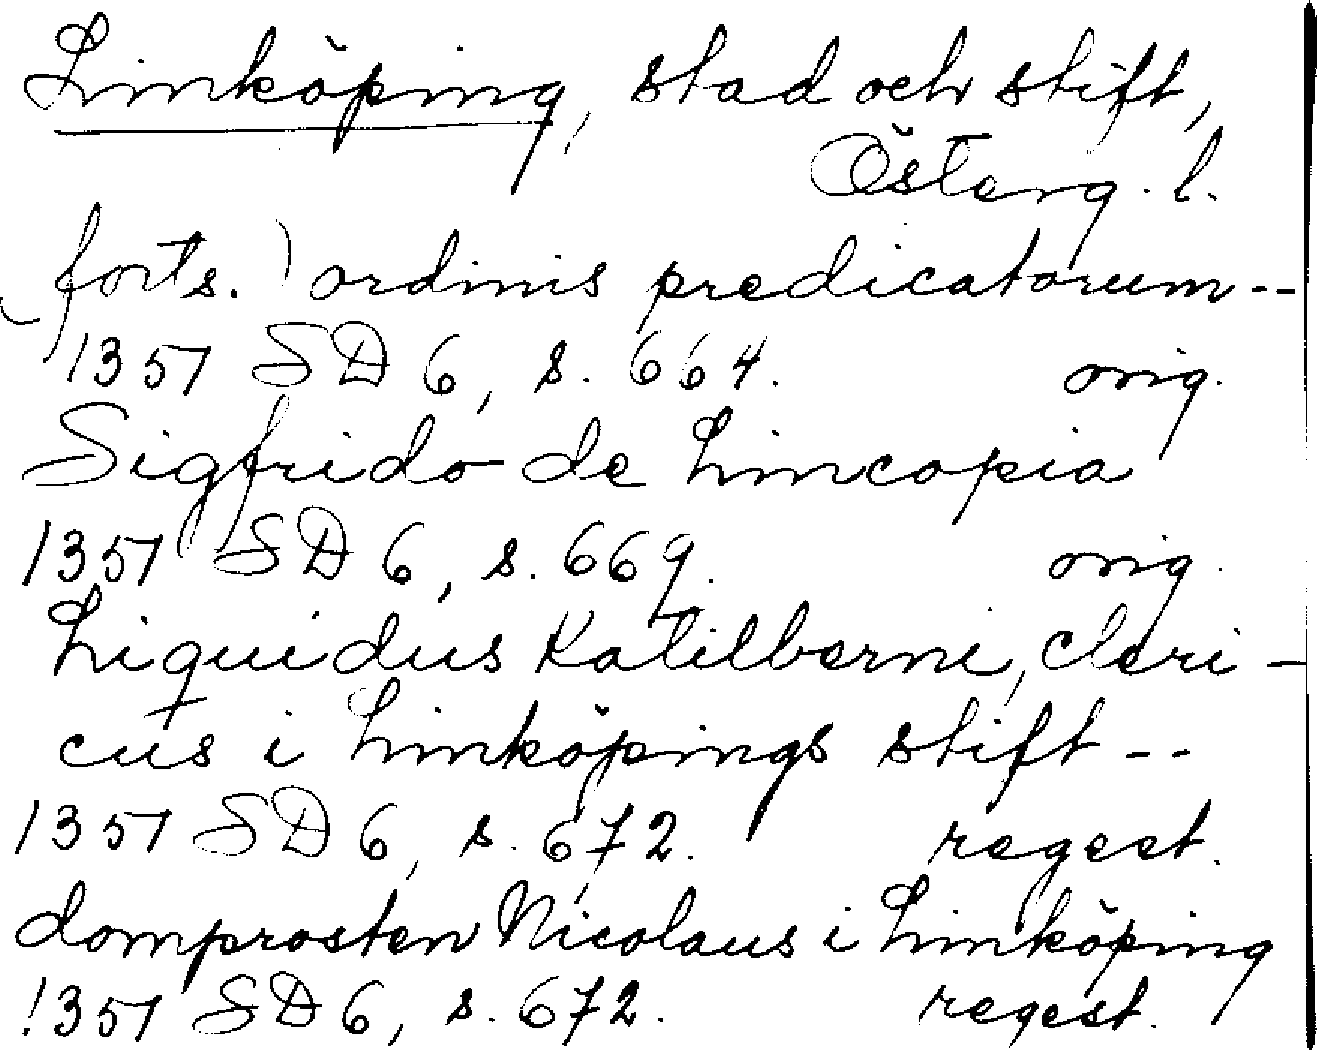 Linköping, stad och stift,
Österg. l.
(forts.) ordinis predicatorum --
1357 SD 6, s. 664. orig.
Sigfrido de Lincopia
1357 SD 6, s. 669. orig.
Liquidus Katilberni, cleri-
cus i Linköpings stift --
1357 SD 6, s. 672. regest.
domprosten Nicolaus i Linköping
1357 SD 6, s. 672. regest.